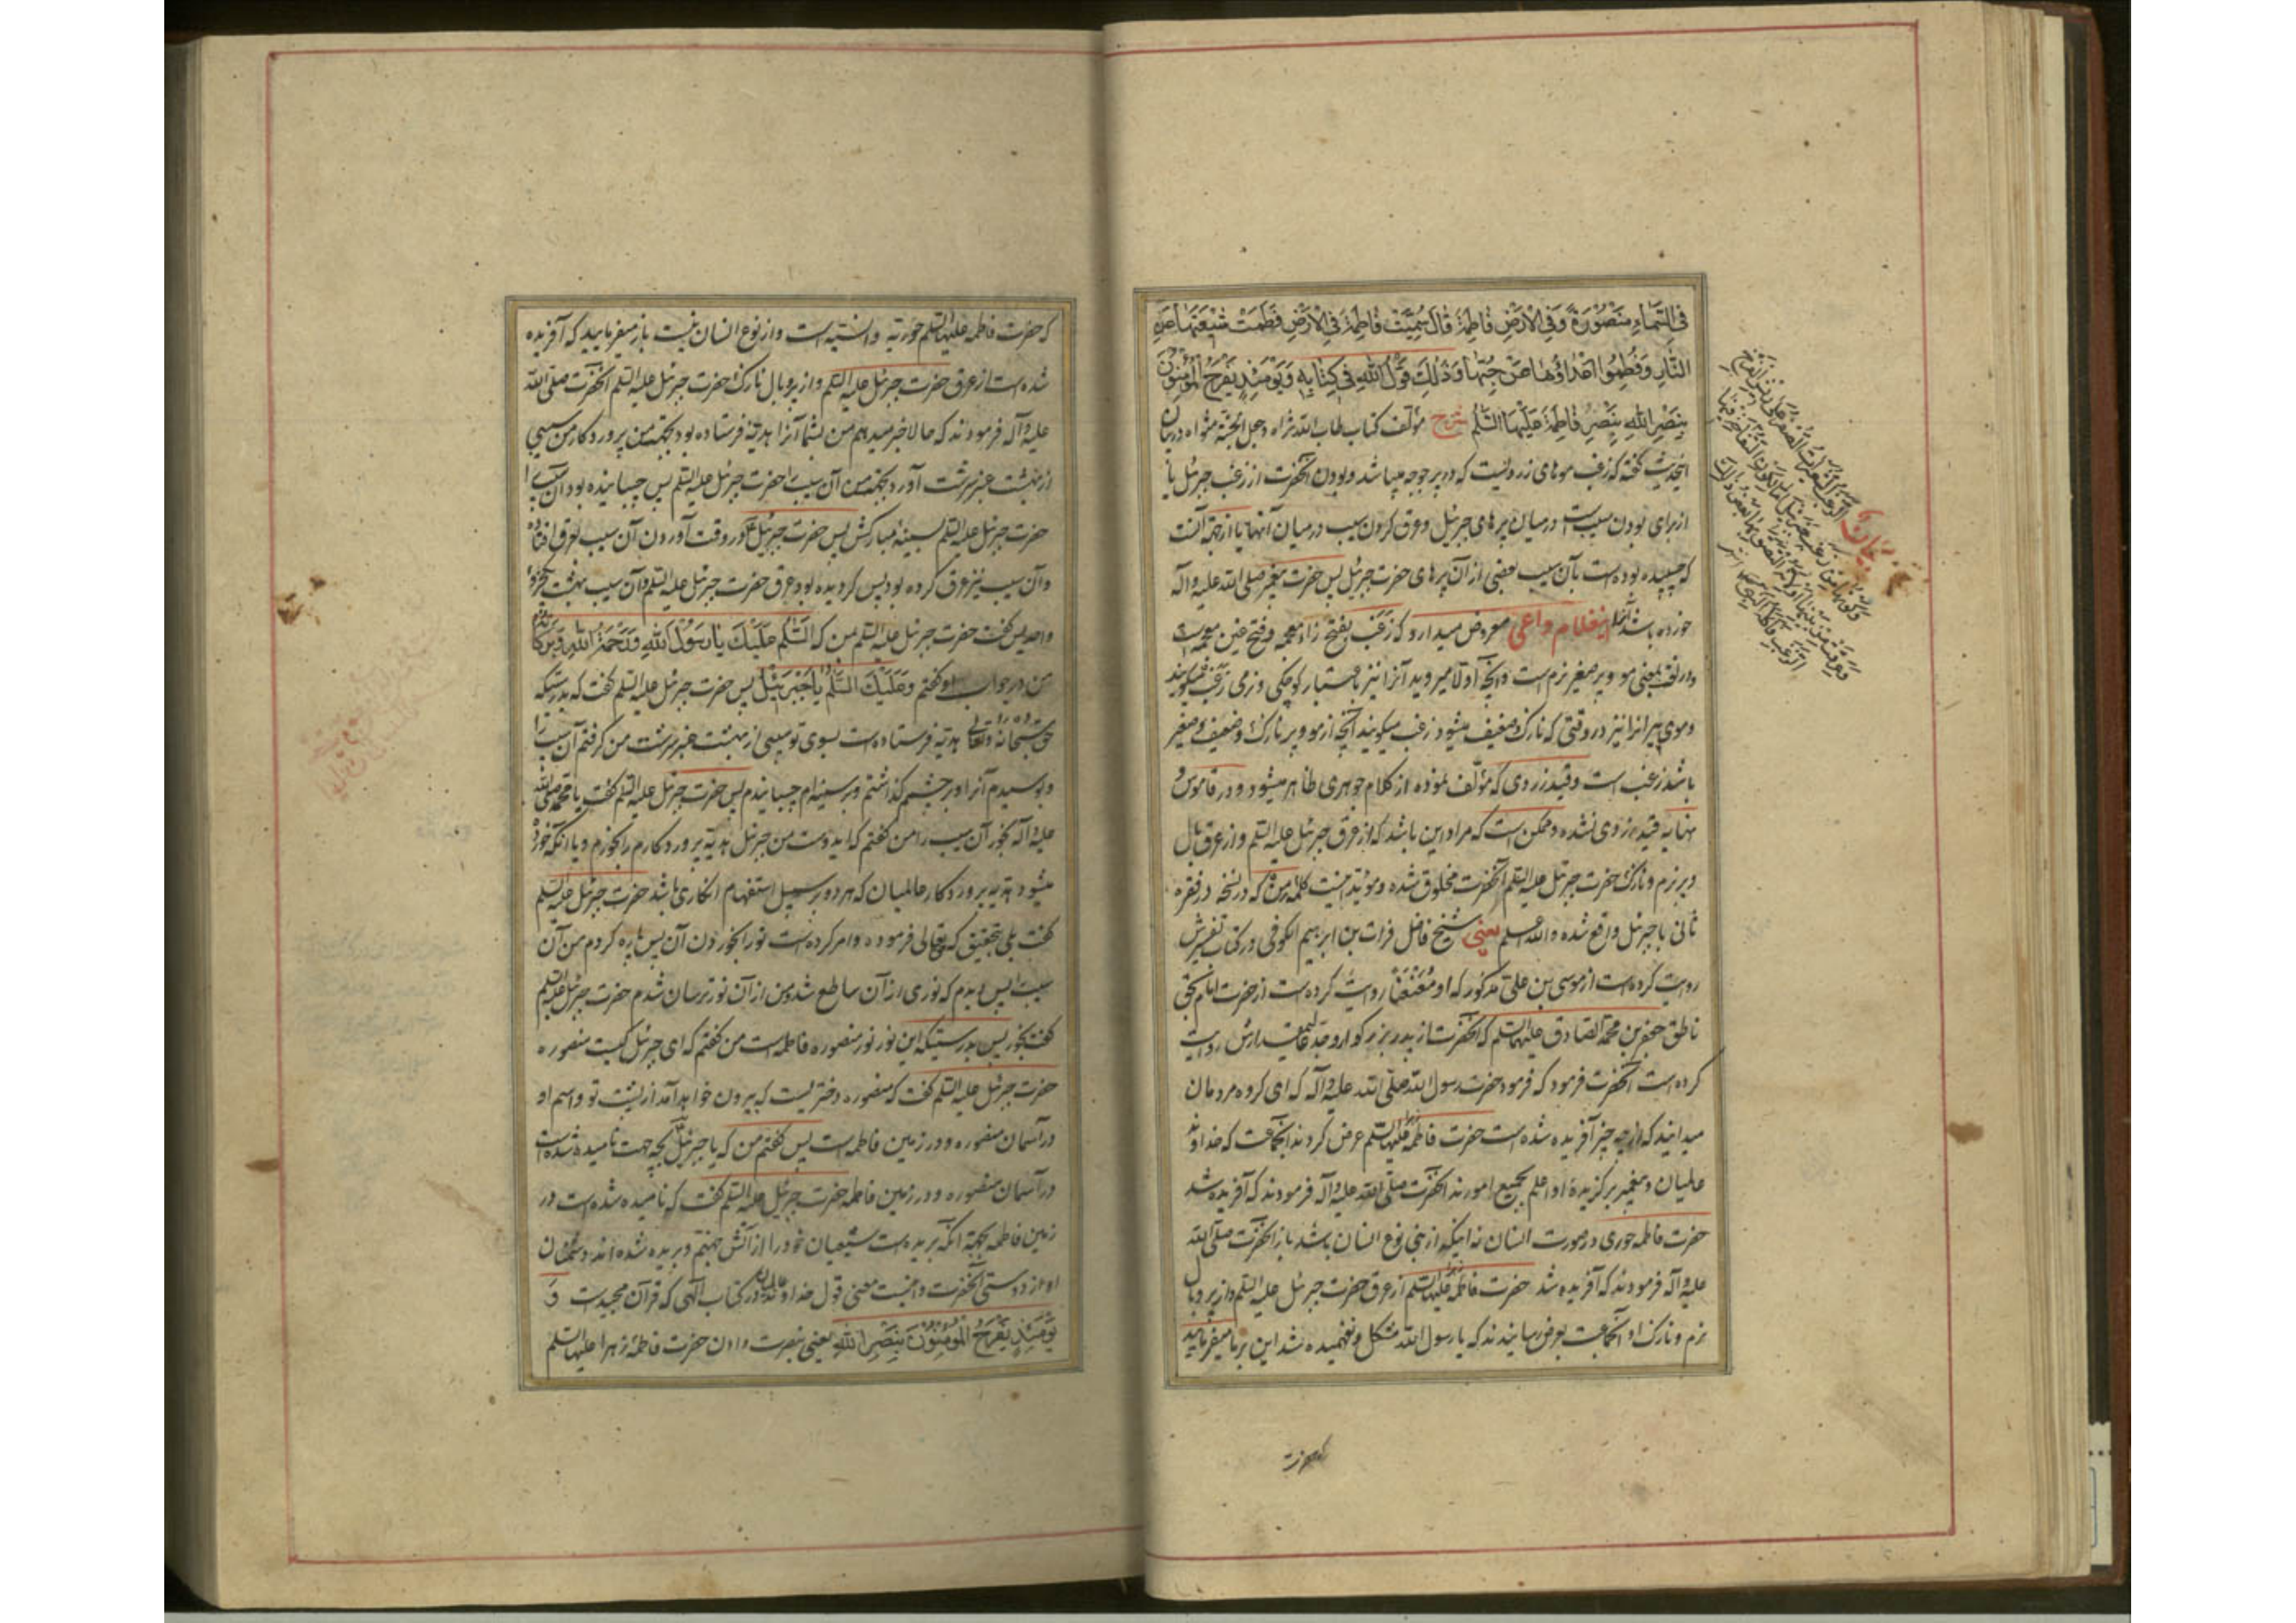 فِی السَّمٰاءِ مَنْصُوْرَةً وَفِی الْاَرْضِ فٰاطِمَةَ قٰالَ سُمِّیَتْ فٰاطِمَةَ فِی الْاَرْضِ فَطَمَتْ شِیْعَتَهٰا مِنَ
النّٰارِ وَفُطِمُوا اَعْدٰاؤُهٰا عَنْ حُبِّهٰا وَذٰلِکَ قَوْلُ اللّٰهِ فِی کِتٰابِهِ وَیَوْمَئِذٍ یَفْرَحُ الْمُؤْمِنُوْنَ
بِنَصْرِ اللّٰهِ بِنَصْرِ فٰاطِمَةَ عَلَیْهَا السَّلٰمُ شرح مؤلف کتاب طاب الله ثراه وجعل الجنة مثواه در بیان
این حدیث گفته که زغب موهای زردیست که در پر جوجه میباشد و بودن آنحضرت از زغب جبرئیل یا
از برای بودن سیب است در میان پرهای جبرئیل و عرق کردن سیب در میان آنها یا از جهة آنست
که چسپیده بوده است بآن سیب بعضی از آن پرهای حضرت جبرئیل پس حضرت پیغمبر صلی الله علیه واله
خورده باشد آنرا اینغلام داعی معروض میدارد که زغب بفتح زاء معجمه و فتح غین معجمه است
در لغت بمعنی مو و پر صغیر نرم است و آنچه اولا میروید آنرا نیز باعتبار کوچکی و نرمی زغب میگویند
و موی پیرانرا نیز در وقتی که نازک و ضعیف میشود زغب میگویند آنچه از مو و پر نازک و ضعیف و صغیر
باشد زغب است و قید زردی که مؤلف نموده از کلام جوهری ظاهر میشود و در قاموس و
نهایه قید بزردی نشده و ممکن است که مراد این باشد که از عرق جبرئیل علیه السلم و از عرق بال
و پر نرم و نازک حضرت جبرئیل علیه السلم آنحضرت مخلوق شده و مؤید اینست کلمه من که در نسخه در فقره
ثانی با جبرئیل واقع شده والله اعلم یعنی شیخ فاضل فرات بن ابرهیم الکوفی در کتاب تفسیرش
روایت کرده است از موسی بن علی مذکور که او مُعَنْعَنًا روایت کرده است از حضرت امام بحق
ناطق جعفر بن محمد الصادق علیهما السلم که آنحضرت از پدر بزرگوار و جد عالیمقدارش روایت
کرده است آنحضرت فرمود که فرمود حضرت رسول الله صلی الله علیه وآله که ای گروه مردمان
میدانید که از چه چیز آفریده شده است حضرت فاطمه علیها السلم عرض کردند آنجماعت که خداوند
عالمیان و پیغمبر برگزیدهٔ او اعلم بجمیع امورند آنحضرت صلی الله علیه وآله فرمودند که آفریده شد
حضرت فاطمه حوری در صورت انسان نه اینکه از بنی نوع انسان باشد باز آنحضرت صلی الله
علیه وآله فرمودند که آفریده شد حضرت فاطمه علیها السلم از عرق حضرت جبرئیل علیه السلم و از پر و بال
نرم و نازک او آنجماعت بعرض رسانیدند که یا رسول الله مشکل و نفهمیده شد این بر ما میفرمایید
که حضرت
بیان
که حضرت فاطمه علیها السلم حوریه وانسیه است و از نوع انسان نیست باز میفرمایید که آفریده
شده است از عرق حضرت جبرئیل علیه السلم و از پر و بال نازک حضرت جبرئیل علیه السلم آنحضرت صلی الله
علیه وآله فرمودند که حالا خبر میدهم من بشما آنرا هدیه فرستاده بود بجهة من پروردگار من سیبی
از بهشت عنبر سرشت آورد بجهة من آن سیب را حضرت جبرئیل علیه السلم پس چسپانیده بود آن سیب را
حضرت جبرئیل علیه السلم بسینهٔ مبارکش پس حضرت جبرئیل در وقت آوردن آن سیب بعرق افتاد
و آن سیب نیز عرق کرده بود پس گردیده بود عرق حضرت جبرئیل علیه السلم و آن سیب بهشت
واحد پس گفت حضرت جبرئیل علیه السلم من که اَلسَّلٰمُ عَلَیْکَ یٰا رَسُوْلَ اللّٰهِ وَرَحْمَةُ اللّٰهِ وَبَرَکٰاتُهُ
من در جواب او گفتم وَعَلَیْکَ السَّلٰمُ یٰا جَبْرَئِیْلُ پس حضرت جبرئیل علیه السلم گفت که بدرستیکه
حق سبحانه وتعالی هدیه فرستاده است بسوی تو سیبی از بهشت عنبر سرشت من گرفتم آن سیب را
و بوسیدم آنرا و بر چشم گذاشتم و بر سینه‌ام چسپانیدم پس حضرت جبرئیل علیه السلم گفت یا محمد صلی الله
علیه وآله بخور آن سیب را من گفتم که ای دوست من جبرئیل هدیهٔ پروردگارم را بخورم و یا آنکه خورده
میشود هدیه پروردگار عالمیان که هر دو بر سبیل استفهام انکاری باشد حضرت جبرئیل علیه السلم
گفت بلی بتحقیق که حقتعالی فرموده و امر کرده است تو را بخوردن آن پس پاره کردم من آن
سیب را پس دیدم که نوری از آن ساطع شد و من از آن نور ترسان شدم حضرت جبرئیل علیه السلم
گفت بخور پس بدرستیکه این نور نور منصوره فاطمه است من گفتم که ای جبرئیل کیست منصوره
حضرت جبرئیل علیه السلم گفت که منصوره دختریست که بیرون خواهد آمد از پشت تو و اسم او
در آسمان منصوره و در زمین فاطمه است پس گفتم من که یا جبرئیل بچه جهت نامیده شده است
در آسمان منصوره و در زمین فاطمه حضرت جبرئیل علیه السلم گفت که نامیده شده است در
زمین فاطمه بجهة آنکه بریده است شیعیان خود را از آتش جهنم و بریده شده اند دشمنان
او از دوستی آنحضرت و اینست معنی قول خداوند عالمیان در کتاب الهی که قرآن مجیدست وَ
یَوْمَئِذٍ یَفْرَحُ الْمُؤْمِنُوْنَ بِنَصْرِ اللّٰهِ یعنی بنصرت دادن حضرت فاطمهٔ زهرا علیها السلم